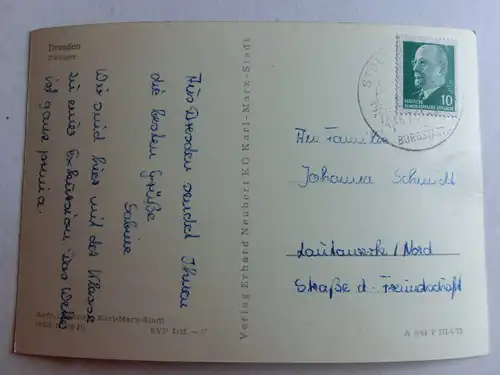 Dresden
Zwinger
Aus Dresden sendet Ihnen
die besten Grüße
Sabine
Wir sind hier mit der Klasse
zu einer Exkursion. Das Wetter
ist ganz prima.
Karl-Marx-Stadt
EVP DM
Verlag Erhard Neubert KG Karl-Marx-Stadt
10
DEUTSCHE
DEMOKRATISCHE REPUBLIK
STOLPEN
BURGSTADT
An Familie
Johanna Schmidt
Lautawerk/Nord
Straße d. Freundschaft